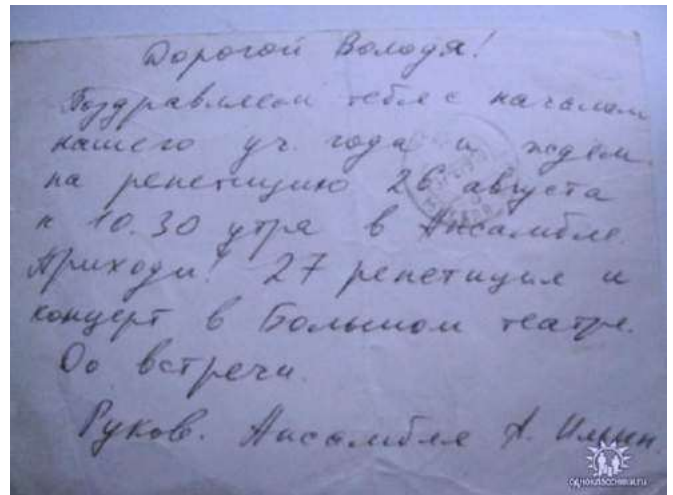 Дорогой Володя!
Поздравляем тебя с началом
нашего уч. года и ждем
на репетицию 26 августа
к 10.30 утра в Ансамбле.
Приходи! 27 репетиция и
концерт в Большом театре.
До встречи.
Руков. Ансамбля А. Ильин.
одноклассники.ru